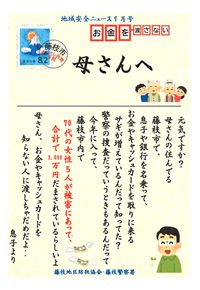 地域安全ニュース9月号
お金を渡さない
藤枝市
82
母さんへ
元気ですか？
母さんの住んでる
藤枝市内で
息子や銀行を名乗って、
お金やキャッシュカードを取りに来る
サギが増えているんだって知ってた？
警察の捜査だっていうときもあるんだって
今年に入って、
藤枝市内で
70代の女性5人が被害にあって、
合計で1,000万円だまされているらしいよ
母さん、お金やキャッシュカードを
知らない人に渡しちゃだめだよ。
息子より
藤枝地区防犯協会・藤枝警察署